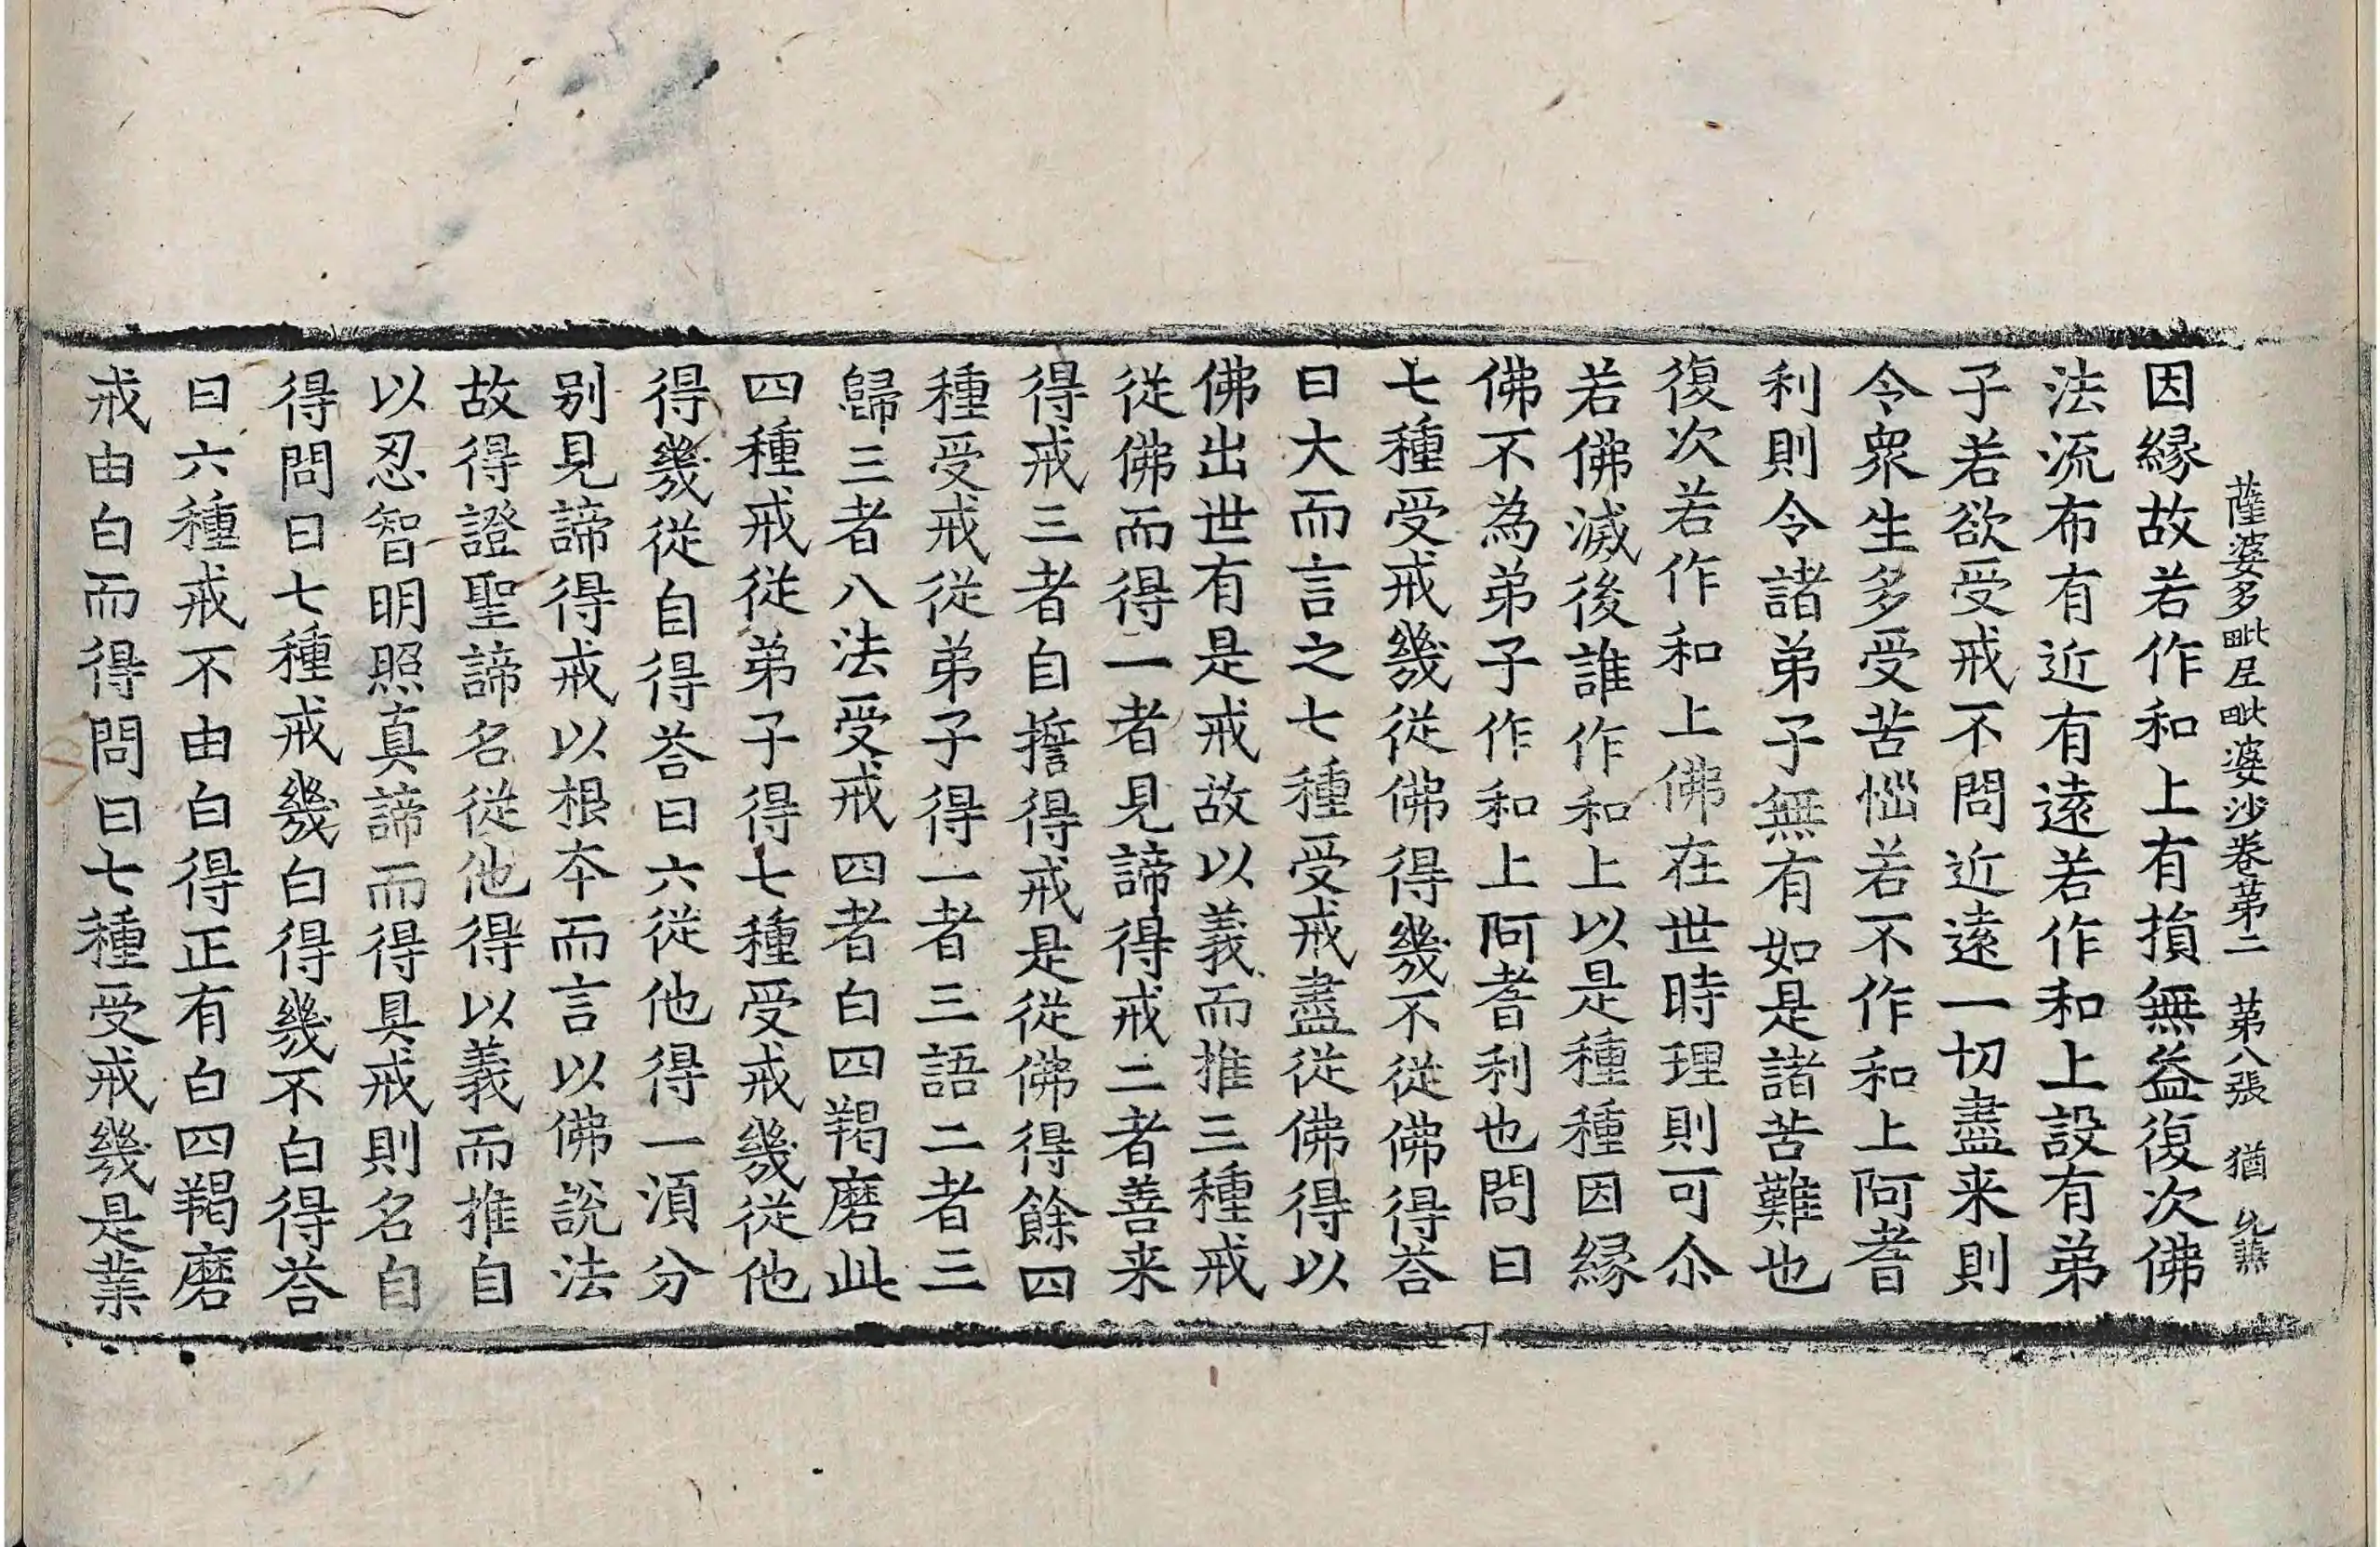 薩婆多毗尼毗婆沙卷第二　第八張　猶
因縁故若作和上有損無益復次佛
法流布有近有遠若作和上設有弟
子若欲受戒不問近遠一切盡来則
令衆生多受苦惱若不作和上阿耆
利則令諸弟子無有如是諸苦難也
復次若作和上佛在世時理則可尒
若佛滅後誰作和上以是種種因縁
佛不為弟子作和上阿耆利也問曰
七種受戒幾從佛得幾不從佛得荅
曰大而言之七種受戒盡從佛得以
佛出世有是戒故以義而推三種戒
從佛而得一者見諦得戒二者善来
得戒三者自誓得戒是從佛得餘四
種受戒從弟子得一者三語二者三
歸三者八法受戒四者白四羯磨此
四種戒從弟子得七種受戒幾從他
得幾從自得荅曰六從他得一湏分
别見諦得戒以根本而言以佛說法
故得證聖諦名從他得以義而推自
以忍智明照真諦而得具戒則名自
得問曰七種戒幾白得幾不白得荅
曰六種戒不由白得正有白四羯磨
戒由白而得問曰七種受戒幾是業